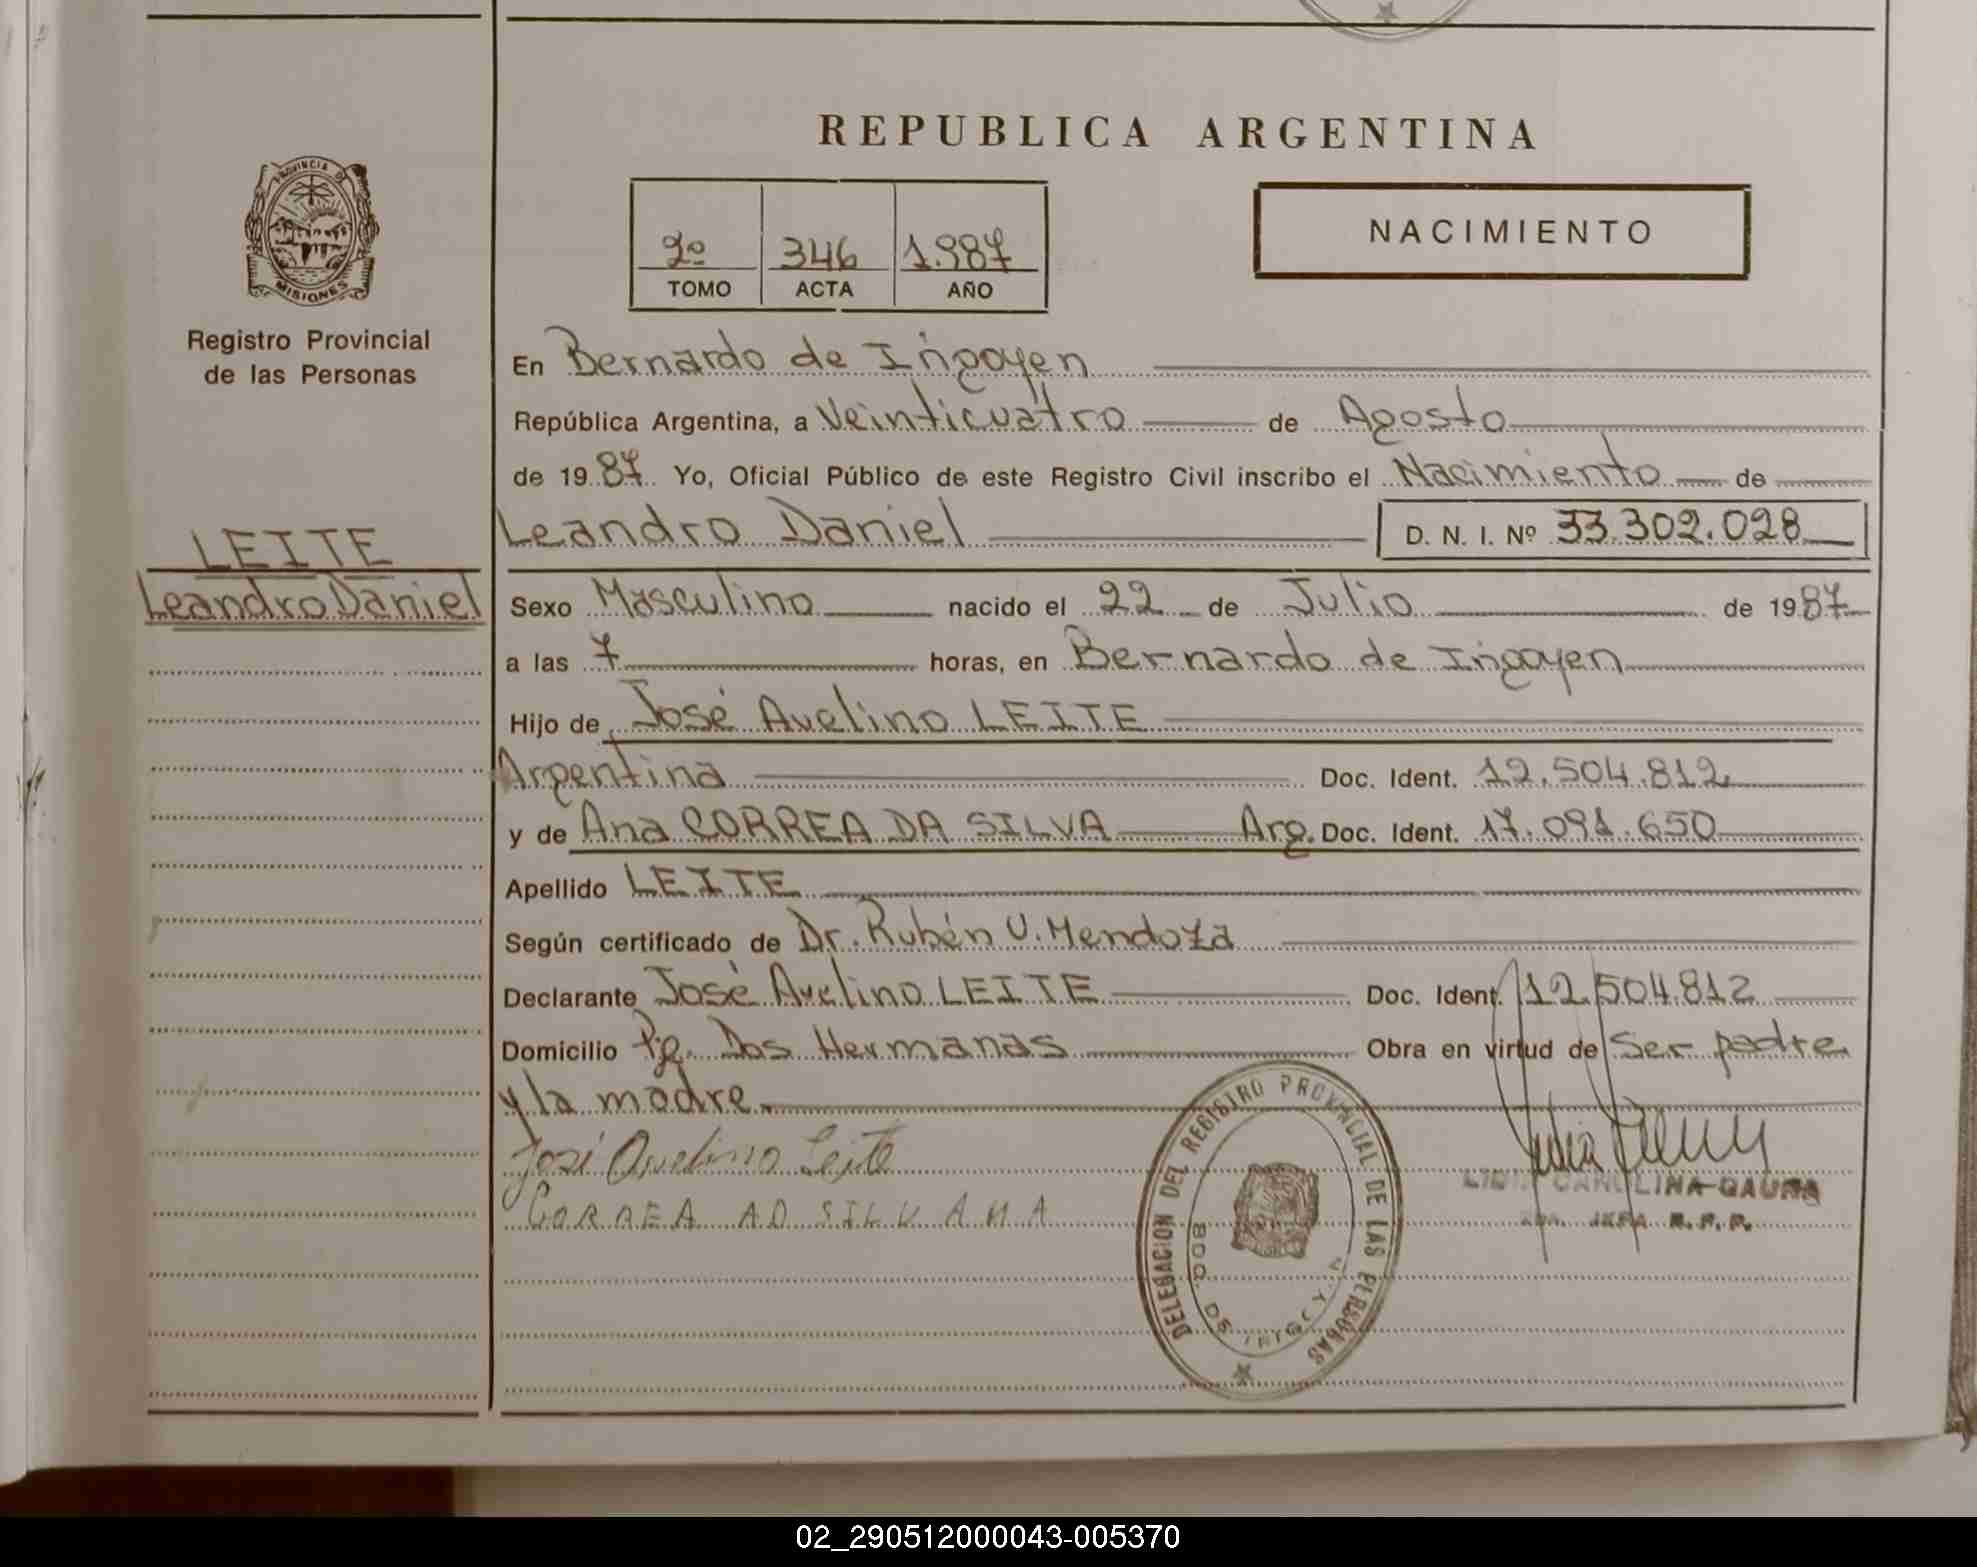 REPUBLICA ARGENTINA
PROVINCIA DE
MISIONES
Registro Provincial
de las Personas
2º 346 1.987
TOMO ACTA AÑO
NACIMIENTO
LEITE
Leandro Daniel
En Bernardo de Irigoyen
República Argentina, a Veinticuatro de Agosto
de 1987 Yo, Oficial Público de este Registro Civil inscribo el Nacimiento de
Leandro Daniel D. N. I. Nº 33.302.028
Sexo Masculino nacido el 22 de Julio de 1987
a las 7 horas, en Bernardo de Irigoyen
Hijo de José Avelino LEITE
Argentina Doc. Ident. 12.504.812
y de Ana CORREA DA SILVA Arg. Doc. Ident. 17.091.650
Apellido LEITE
Según certificado de Dr. Rubén U. Mendoza
Declarante José Avelino LEITE Doc. Ident. 12.504.812
Domicilio Pje. Dos Hermanas Obra en virtud de Ser padre
y la madre.
José Avelino Leite
CORREA AD SILV ANA
DELEGACION DEL REGISTRO PROVINCIAL DE LAS PERSONAS
BDO. DE IRIGOYEN
LIDIA CAROLINA GAUNA
JEFA R. P. P.
02_290512000043-005370